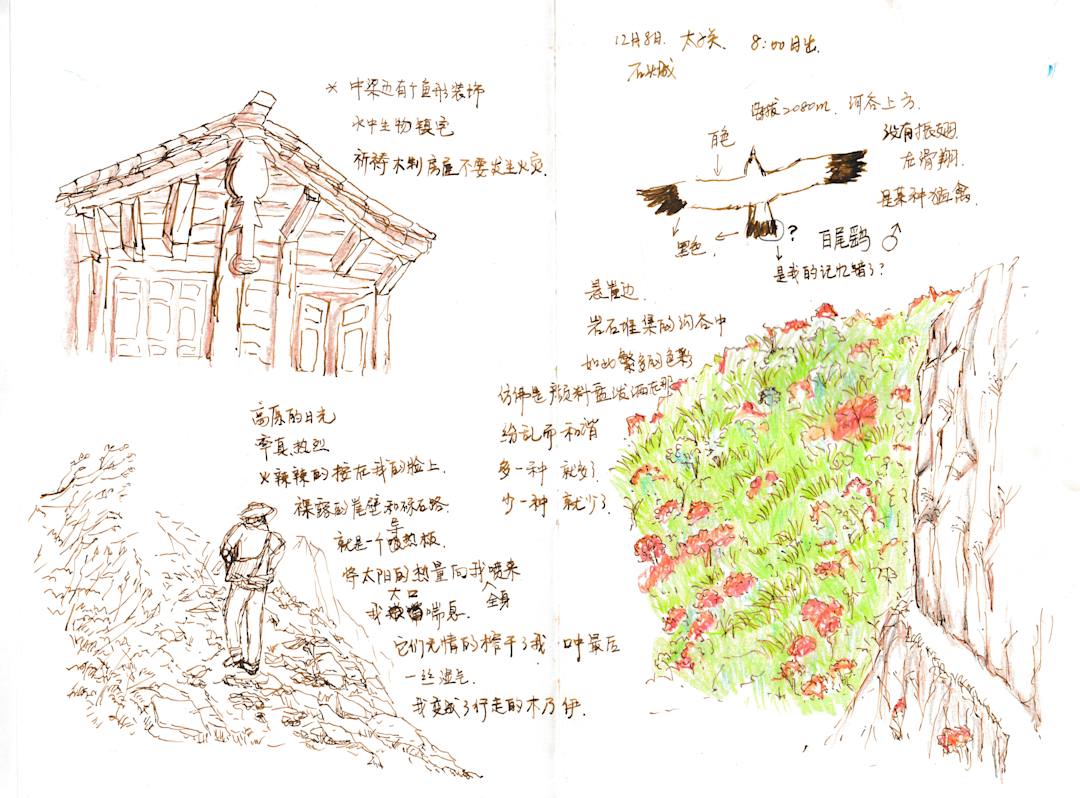 * 中梁也有个鱼形装饰
水中生物镇宅
祈祷木制房屋不要发生火灾.
高原的日光
率真热烈
火辣辣的按在我的脸上.
裸露的崖壁和碎石路
就是一个导热板.
将太阳的热量向我喷来
全身
大口
我喘息.
它们无情的榨干了我 口中最后
一丝湿气
我变成了行走的木乃伊.
12月8日. 太子关. 8:00日出.
石头城
海拔2080m. 河谷上方.
没有振翅
在滑翔.
是某种猛禽.
白色
黑色.
?
白尾鹞 ♂
是我的记忆错了?
悬崖边.
岩石堆集的河谷中
如此繁多的色彩
仿佛是颜料盒泼洒在那
纷乱而和谐
多一种 就多了
少一种 就少了.